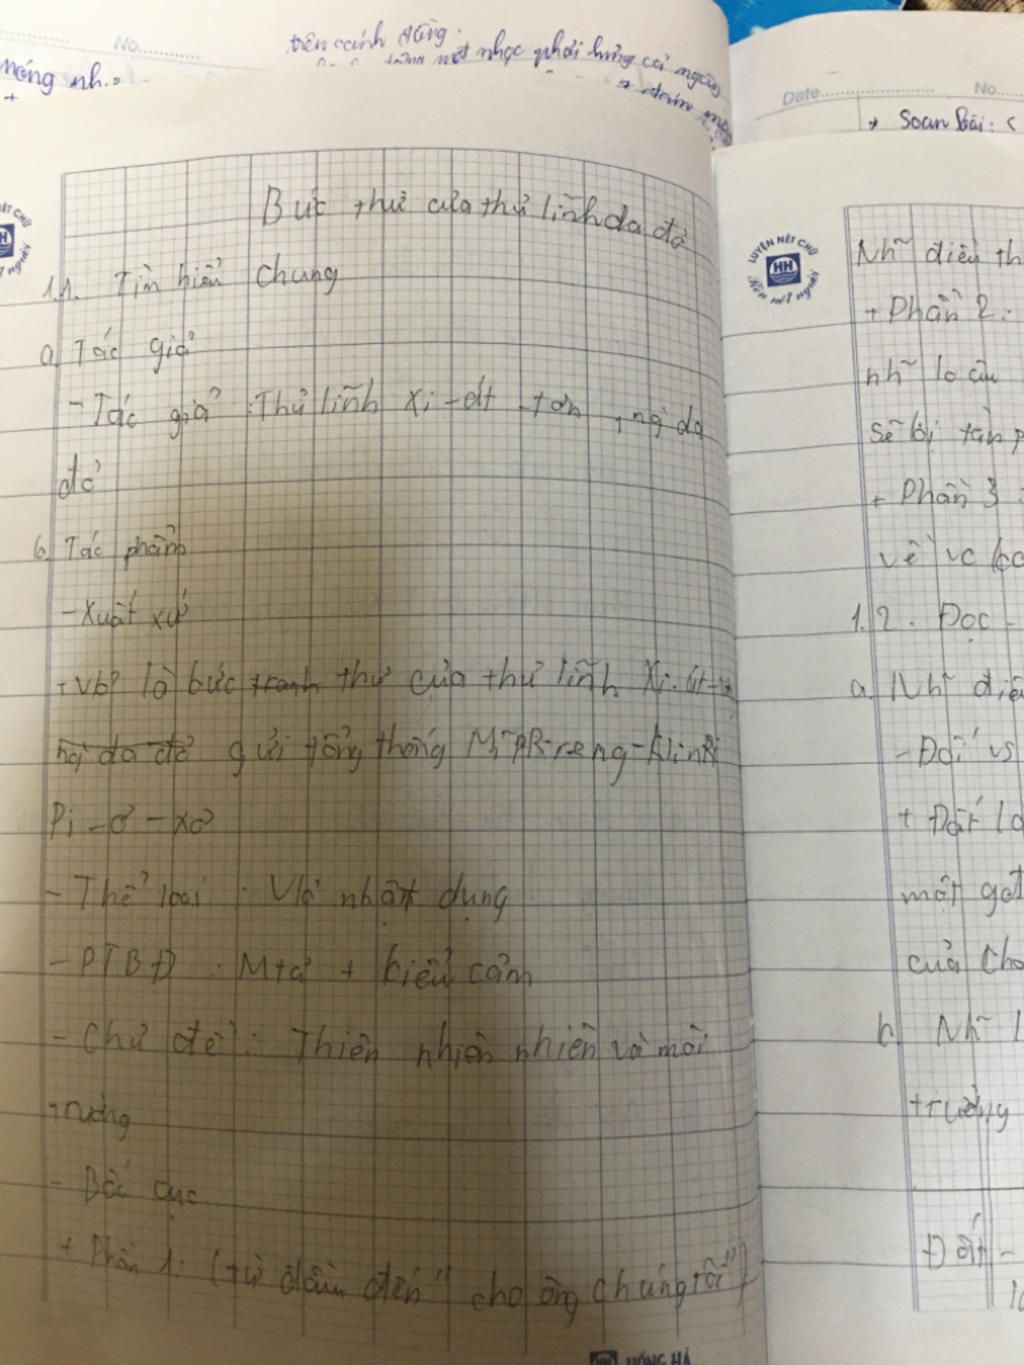 No............
trên cánh đồng.
móng nh..
một nhạc phải hứng cả
Bức thư của thủ lĩnh da đỏ
1.1. Tìm hiểu chung
a. Tác giả
- Tác giả : Thủ lĩnh Xi-át-tơn, ng` da
đỏ
b. Tác phẩm
- Xuất xứ
+ Vb là bức tranh thư của thủ lĩnh Xi-át-
da đỏ gửi tổng thống Mĩ
Pi-ơ-xơ
- Thể loại : Vb nhật dụng
- PTBĐ : Mtả + biểu cảm
- Chủ đề : Thiên nhiên nhiên và môi
trường
- Bố cục
+ Phần 1: (từ đầu đến "cho ông chúng tôi")
HH HỒNG HÀ
Date.............................. No......
* Soạn bài : <
LUYỆN NÉT CHỮ
HH
Rèn nét người
Nh~ điều th
+ Phần 2 :
nh~ lo âu
sẽ bị tàn p
+ Phần 3 :
về
1.2. Đọc -
a. Nh~ điề
- Đối vs
+ Đất là
một
của
b. Nh~ l
trường
Đất -